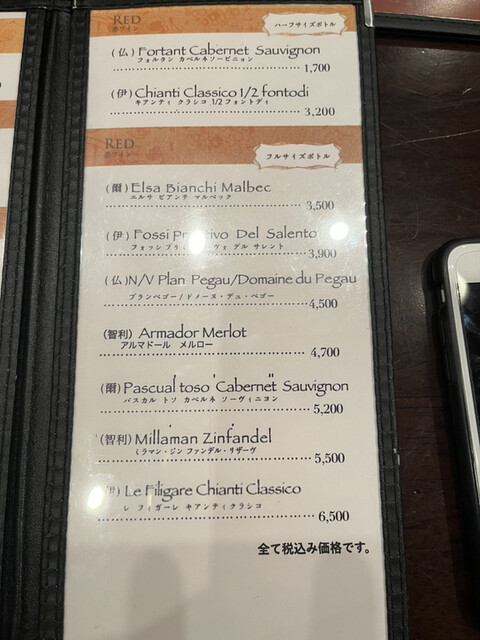 RED
赤ワイン
ハーフサイズボトル
(仏) Fortant Cabernet Sauvignon
フォルタン カベルネソービニョン
1,700
(伊) Chianti Classico 1/2 fontodi
キアンティ クラシコ 1/2フォントディ
3,200
RED
赤ワイン
フルサイズボトル
(爾) Elsa Bianchi Malbec
エルサ ビアンテ マルベック
3,500
(伊) Fossi Del Salento
デル サレント
3,900
(仏) N/V Plan Pegau/Domaine du Pegau
プランペゴー / ドメーヌ・デュ・ペゴー
4,500
(智利) Armador Merlot
アルマドール メルロー
4,700
(爾) Pascual toso "Cabernet" Sauvignon
パスカル トソ カベルネ ソーヴィニヨン
5,200
(智利) Millaman Zinfandel
ミラマン・ジンファンデル・リザーヴ
5,500
(伊) Le Filigare Chianti Classico
レ フィガーレ キアンティクラシコ
6,500
全て税込み価格です。